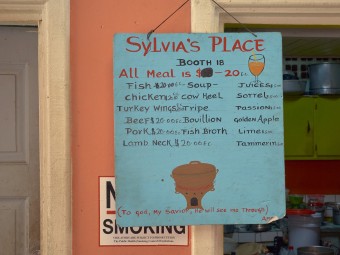 Sylvia's Place
Booth 18
All Meal is $ -20
Fish $20.00 -Soup- Juices
chicken cow Heel Sorrel
Turkey Wings Tripe Passion
Beef $20.00 Bouillion Golden Apple
Pork $20.00 Fish Broth Lime
Lamb Neck $20.00 Tammerin
(To god, My Savior, He will see me Through)
SMOKING